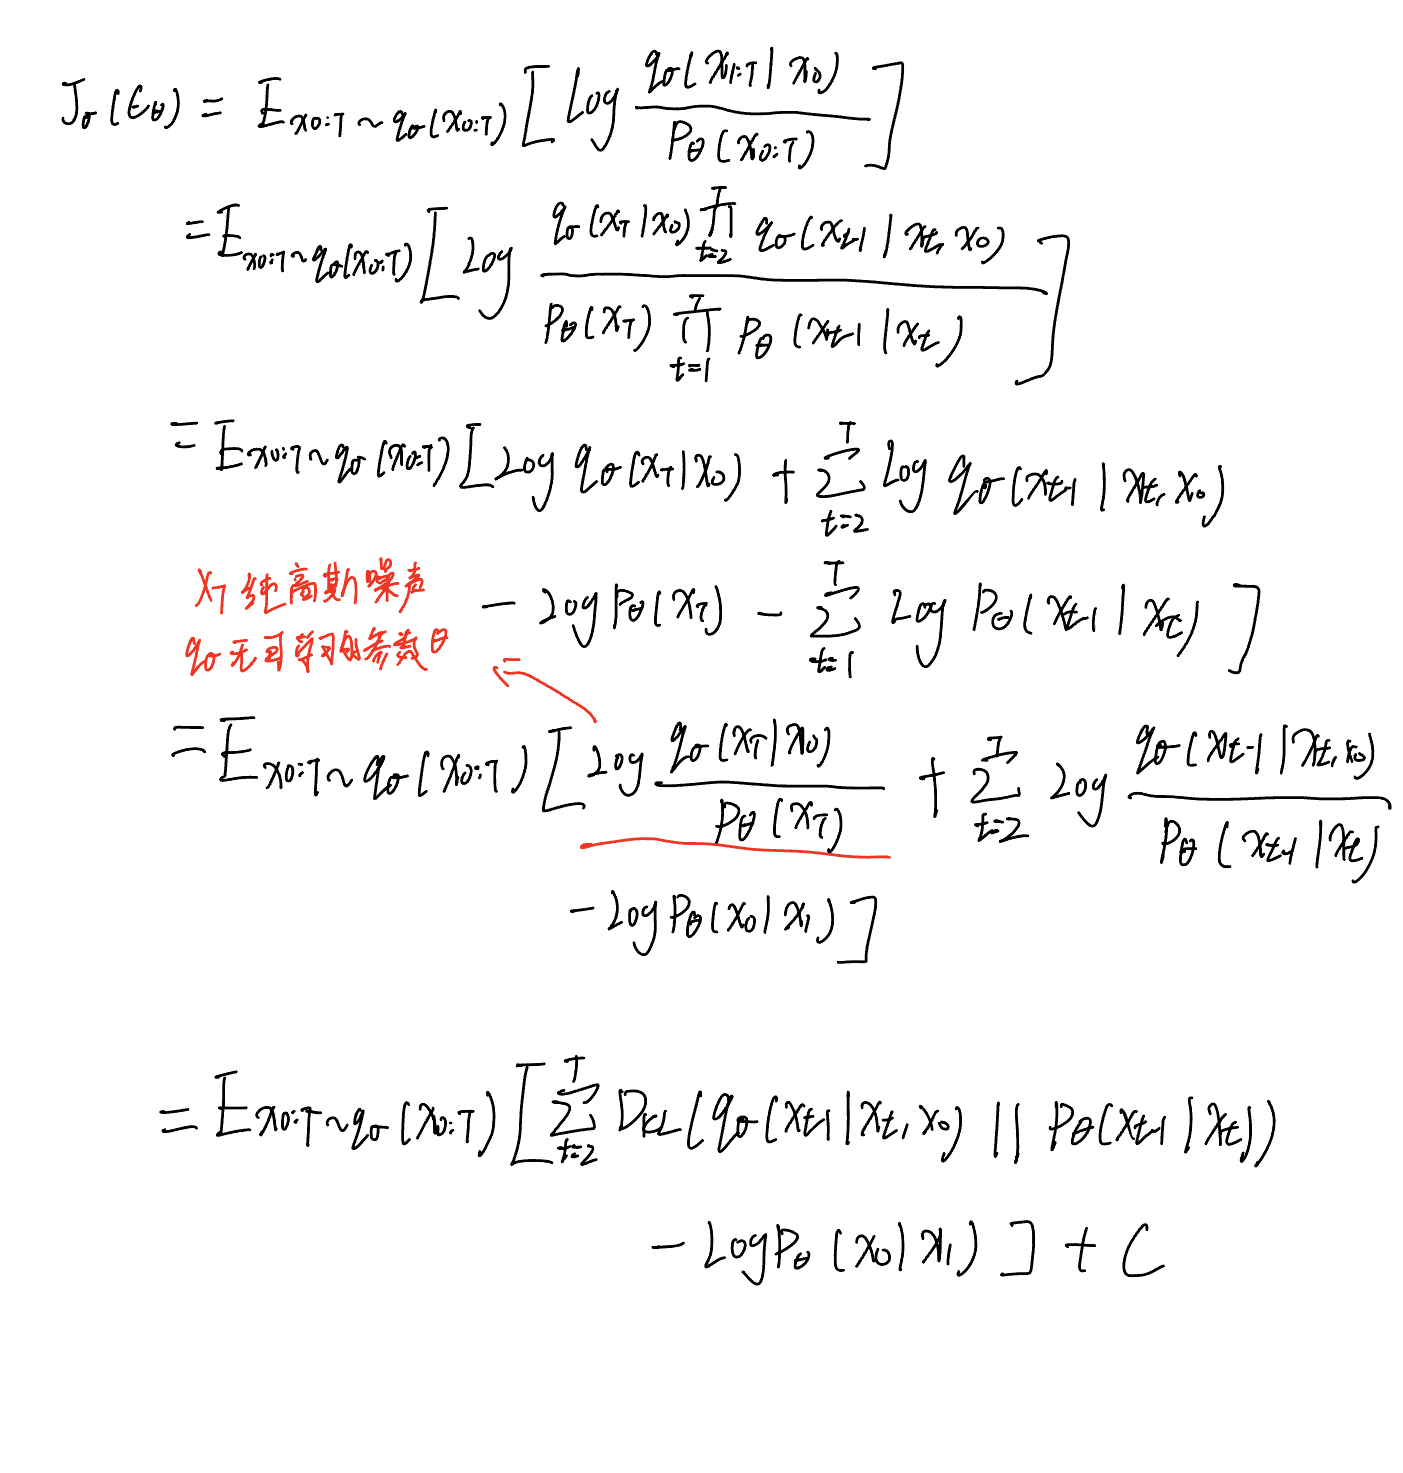 J_σ(ϵ_θ) = E_{x_{0:T}∼q_σ(x_{0:T})} [ Log \frac{q_σ(x_{1:T} | x_0)}{P_θ(x_{0:T})} ]
= E_{x_{0:T}∼q_σ(x_{0:T})} [ Log \frac{q_σ(x_T | x_0) ∏_{t=2}^{T} q_σ(x_{t-1} | x_t, x_0)}{P_θ(x_T) ∏_{t=1}^{T} P_θ(x_{t-1} | x_t)} ]
= E_{x_{0:T}∼q_σ(x_{0:T})} [ Log q_σ(x_T | x_0) + ∑_{t=2}^{T} Log q_σ(x_{t-1} | x_t, x_0)
x_T 纯高斯噪声
− Log P_θ(x_T) − ∑_{t=1}^{T} Log P_θ(x_{t-1} | x_t) ]
q_σ 无可学习的参数 θ
= E_{x_{0:T}∼q_σ(x_{0:T})} [ Log \frac{q_σ(x_T | x_0)}{P_θ(x_T)} + ∑_{t=2}^{T} Log \frac{q_σ(x_{t-1} | x_t, x_0)}{P_θ(x_{t-1} | x_t)}
− Log P_θ(x_0 | x_1) ]
= E_{x_{0:T}∼q_σ(x_{0:T})} [ ∑_{t=2}^{T} D_{KL}(q_σ(x_{t-1} | x_t, x_0) || P_θ(x_{t-1} | x_t))
− Log P_θ(x_0 | x_1) ] + C